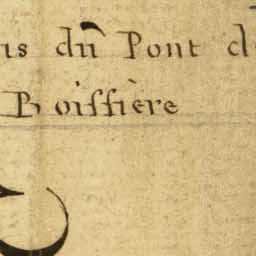 is du Pont de
Boissière